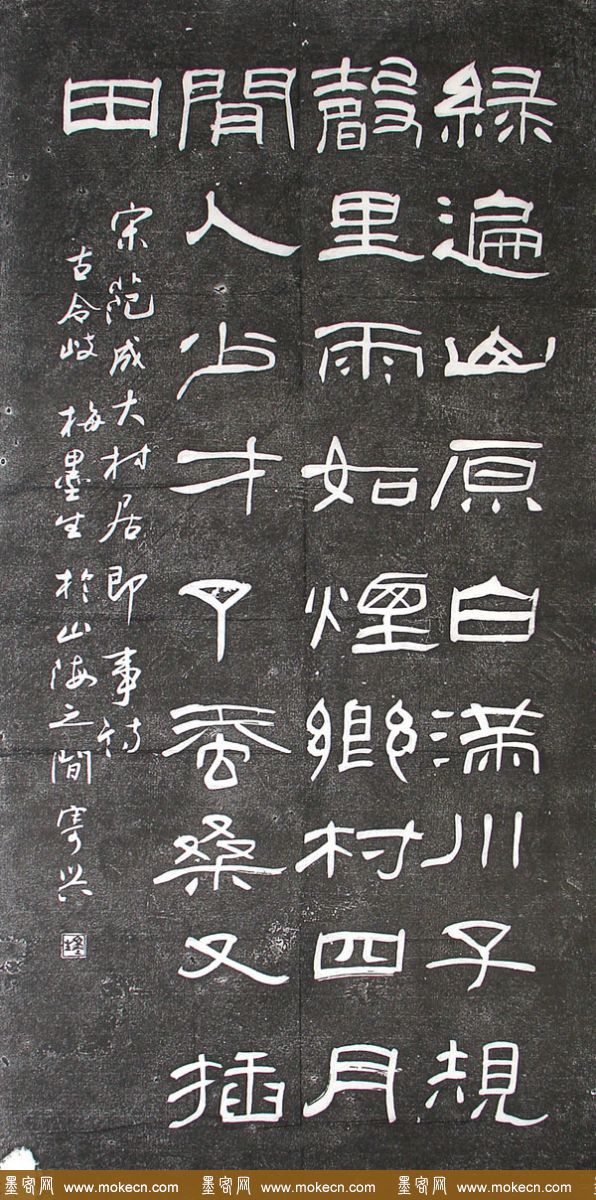 綠遍山原白满川子規
聲里雨如煙鄉村四月
間人少才了蚕桑又插
田
宋范成大村居即事诗
古令岐 梅墨生於山海之間寄兴
墨客网 www.mokecn.com 墨客网 www.mokecn.com 墨客网 www.mokecn.com